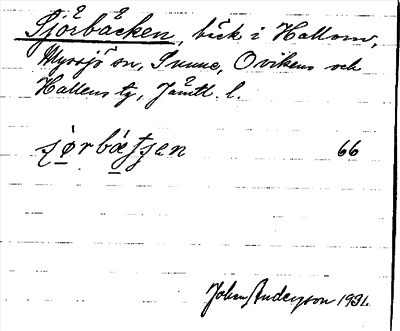 Sjörbäcken, bäck i Hallom,
Myssjö sn, Sunne, Ovikens och
Hallens tg, Jämtl. l.
66
John Anderson 1931.